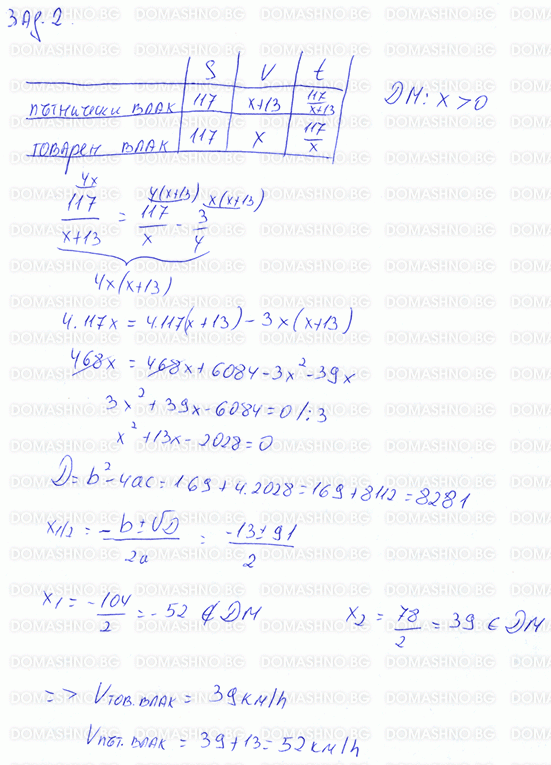 Зад. 2.
S V t
пътнически влак 117 x+13 117/x+13
товарен влак 117 x 117/x
ДМ: x > 0
4x 4(x+13) x(x+13)
117/x+13 = 117/x - 3/4
4x(x+13)
4.117x = 4.117(x+13) - 3x(x+13)
468x = 468x + 6084 - 3x² - 39x
3x² + 39x - 6084 = 0 /:3
x² + 13x - 2028 = 0
D = b² - 4ac = 169 + 4.2028 = 169 + 8112 = 8281
x1/2 = -b ± √D / 2a = -13 ± 91 / 2
x1 = -104/2 = -52 ∉ ДМ x2 = 78/2 = 39 ∈ ДМ
=> Vтов.влак = 39 км/h
Vпът.влак = 39+13 = 52 км/h
DOMASHNO.BG